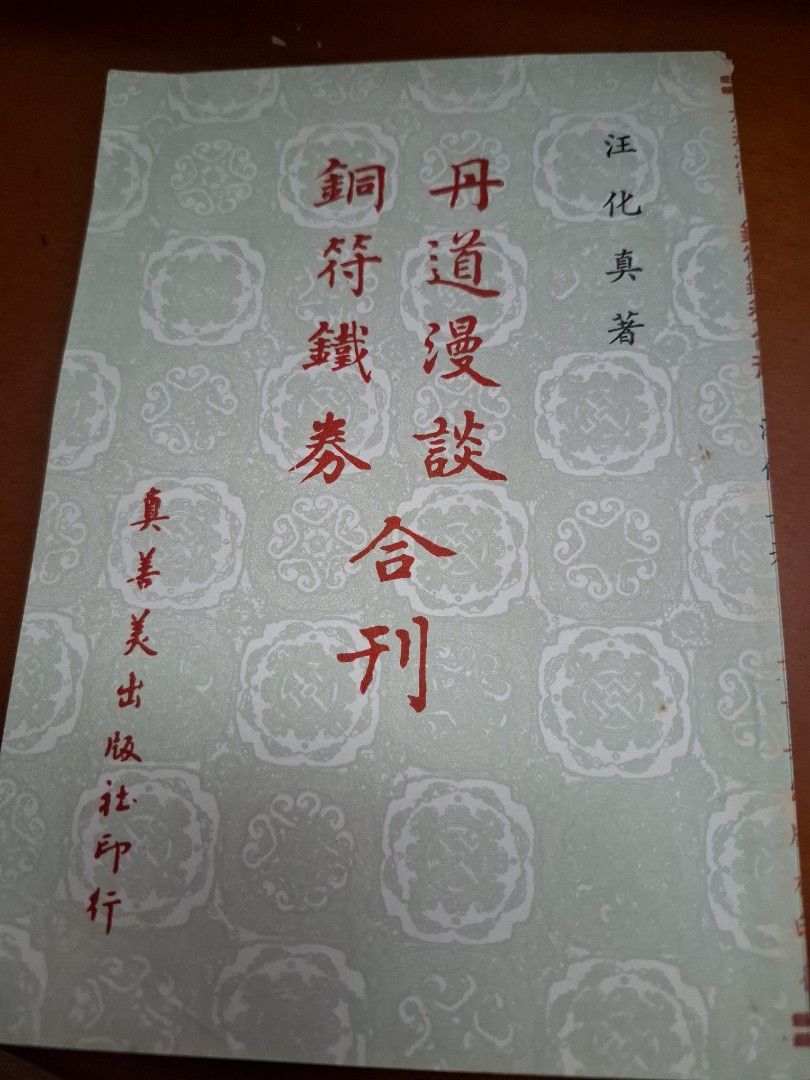 汪化真著
丹道漫談
銅符鐵券
合刊
真善美出版社印行